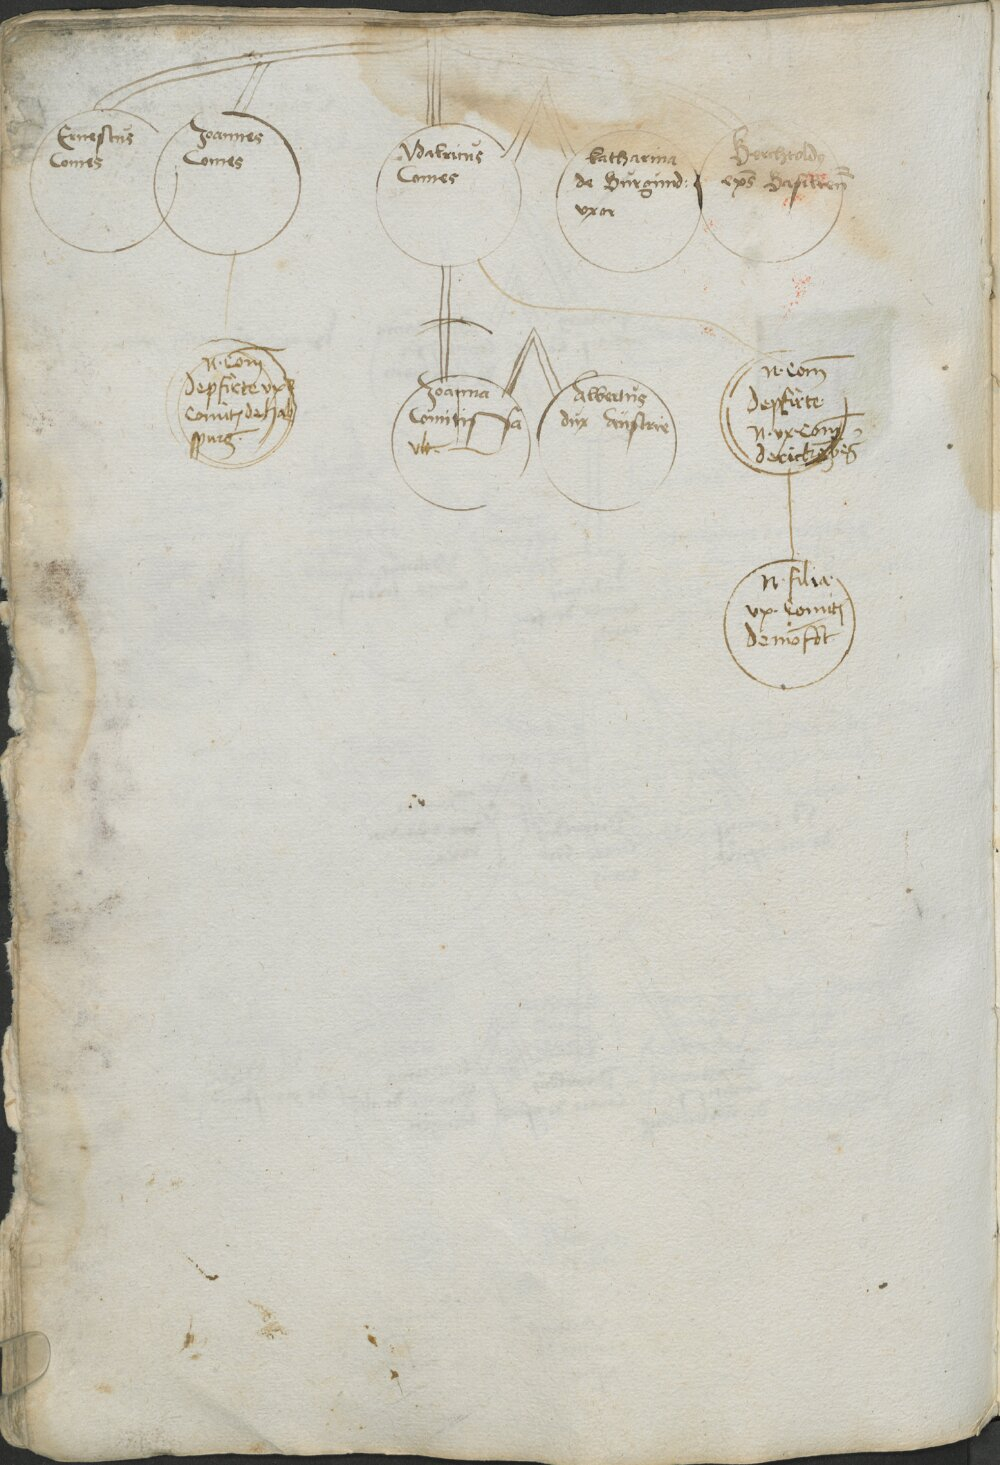 Ernestus
Comes
Joannes
Comes
Vdalricus
Comes
katharina
de Burgund:
vxor
Berchtold9
eps Basilien̄
N. Com̄
de pfirte vx
Comit de hab
spurg
Joanna
Comitissa
vlt.
Albertus
dux Austrie
N. Com̄
de pfirte
N. vx. Com̄
N. filia
vx. Comit
de mo͂fọt